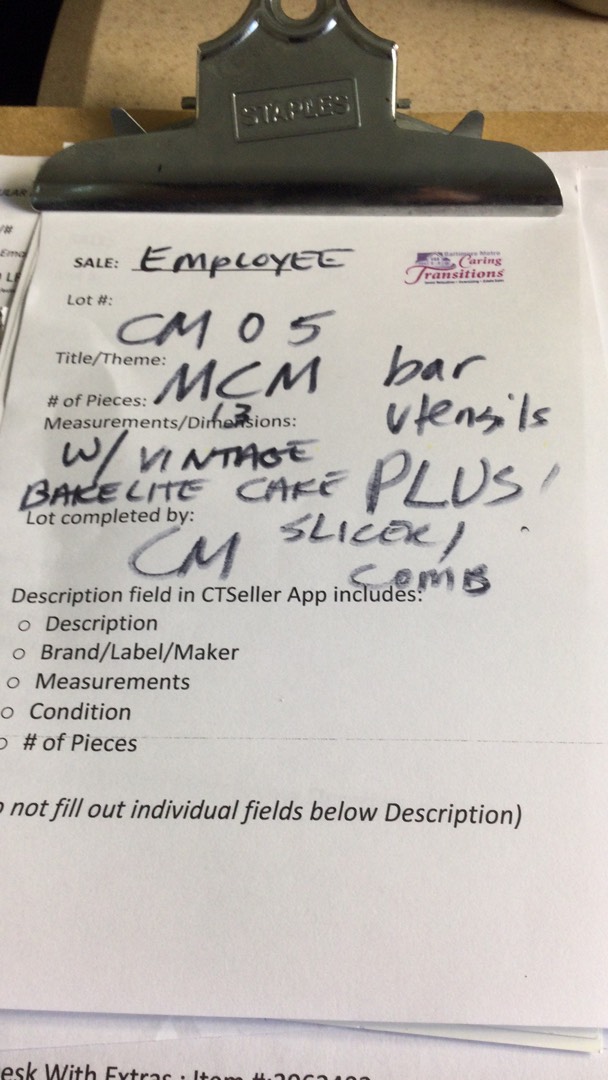 STAPLES
SALE: EMPLOYEE
Baltimore Metro
Caring
Transitions
Lot #:
CM 05
Title/Theme:
MCM bar utensils PLUS!
# of Pieces: 13
Measurements/Dimensions:
W/ VINTAGE
BAKELITE CAKE
SLICER/
COMB
Lot completed by:
CM
Description field in CTSeller App includes:
o Description
o Brand/Label/Maker
o Measurements
o Condition
o # of Pieces
not fill out individual fields below Description)
esk With Extras : Item #: